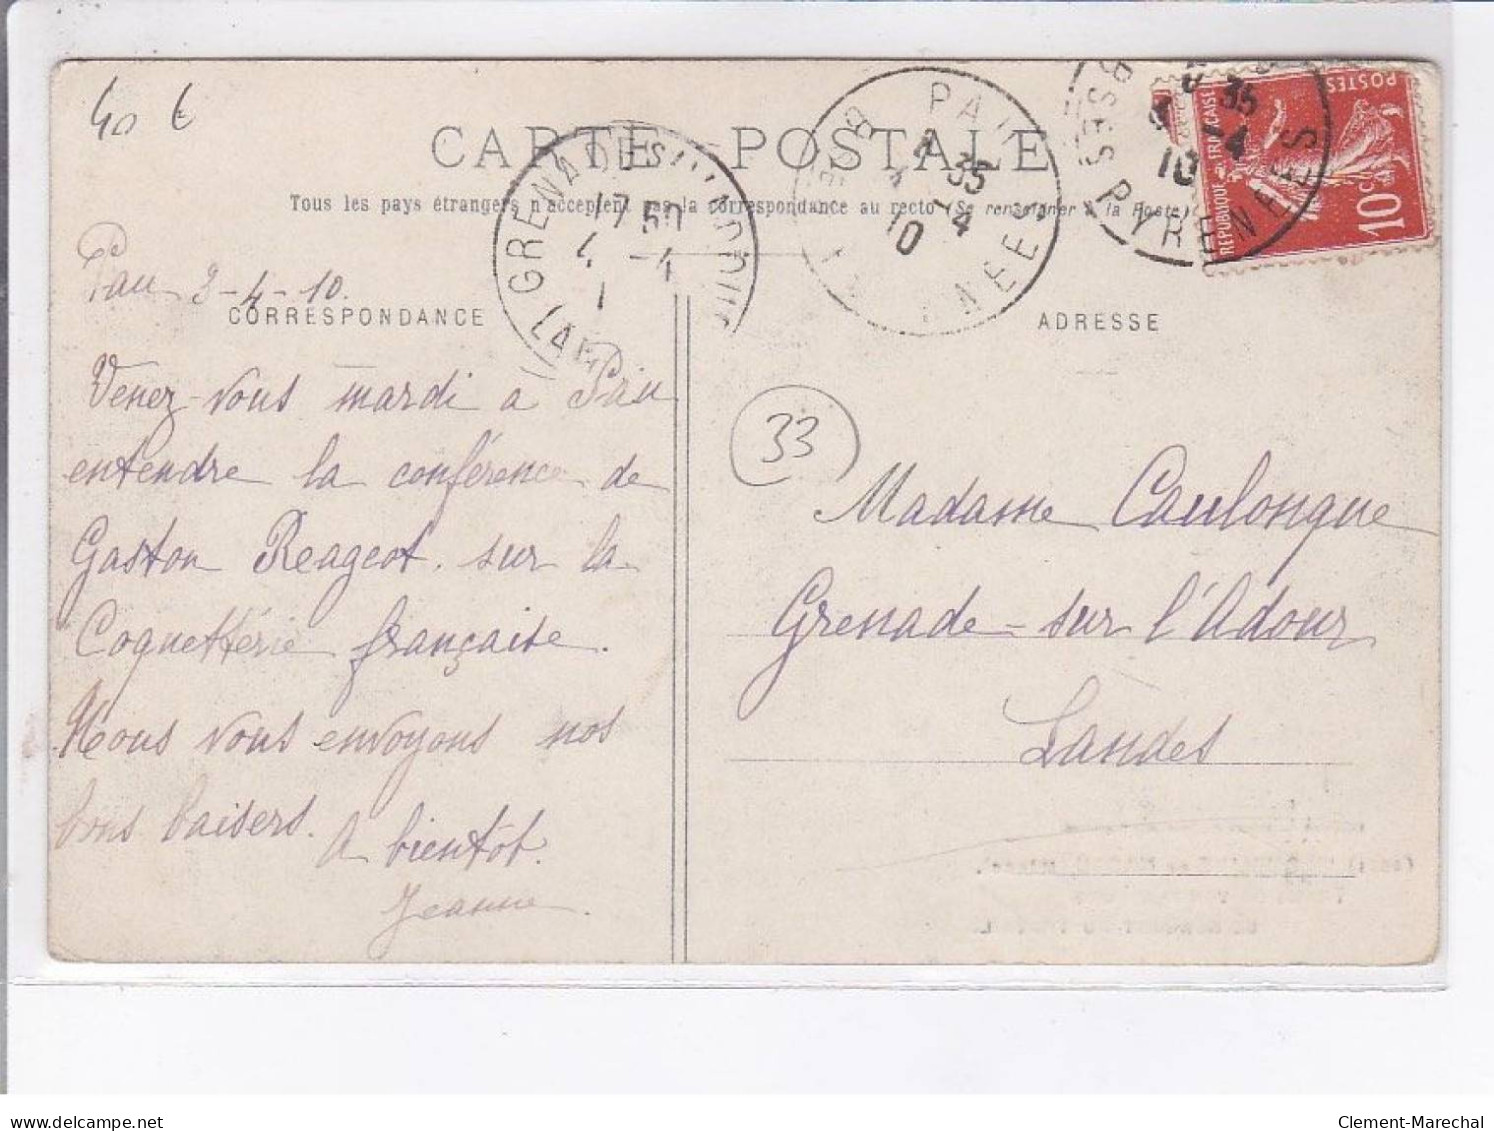 40 €
CARTE POSTALE
Tous les pays étrangers n'acceptent pas la correspondance au recto (Se renseigner à la Poste)
GRENADE SUR L'ADOUR
17 50
4 -4
1
(LANDES)
PAU
35
4
10
BSES PYRENEES
35
4
10
POSTES
REPUBLIQUE FRANCAISE
10c
Pau 3-4-10.
CORRESPONDANCE
ADRESSE
Venez-vous mardi a Pau
entendre la conférence de
Gaston Reageot. sur la
Coquetterie française.
Nous vous envoyons nos
bons baisers. A bientôt.
Jeanne.
33
Madame Caulongue
Grenade-sur l'Adour
Landes
Clement-Marechal
delcampe.net